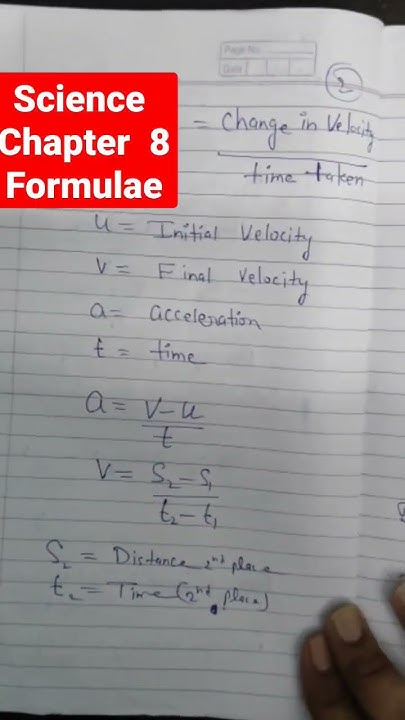 Page No.
Date
2
Science
Chapter 8
Formulae
= Change in Velocity
time taken
u = Initial Velocity
V = Final Velocity
a = acceleration
t = time
a = V-u
t
V = S₂-S₁
t₂-t₁
S₂ = Distance 2nd place
t₂ = Time (2nd place)